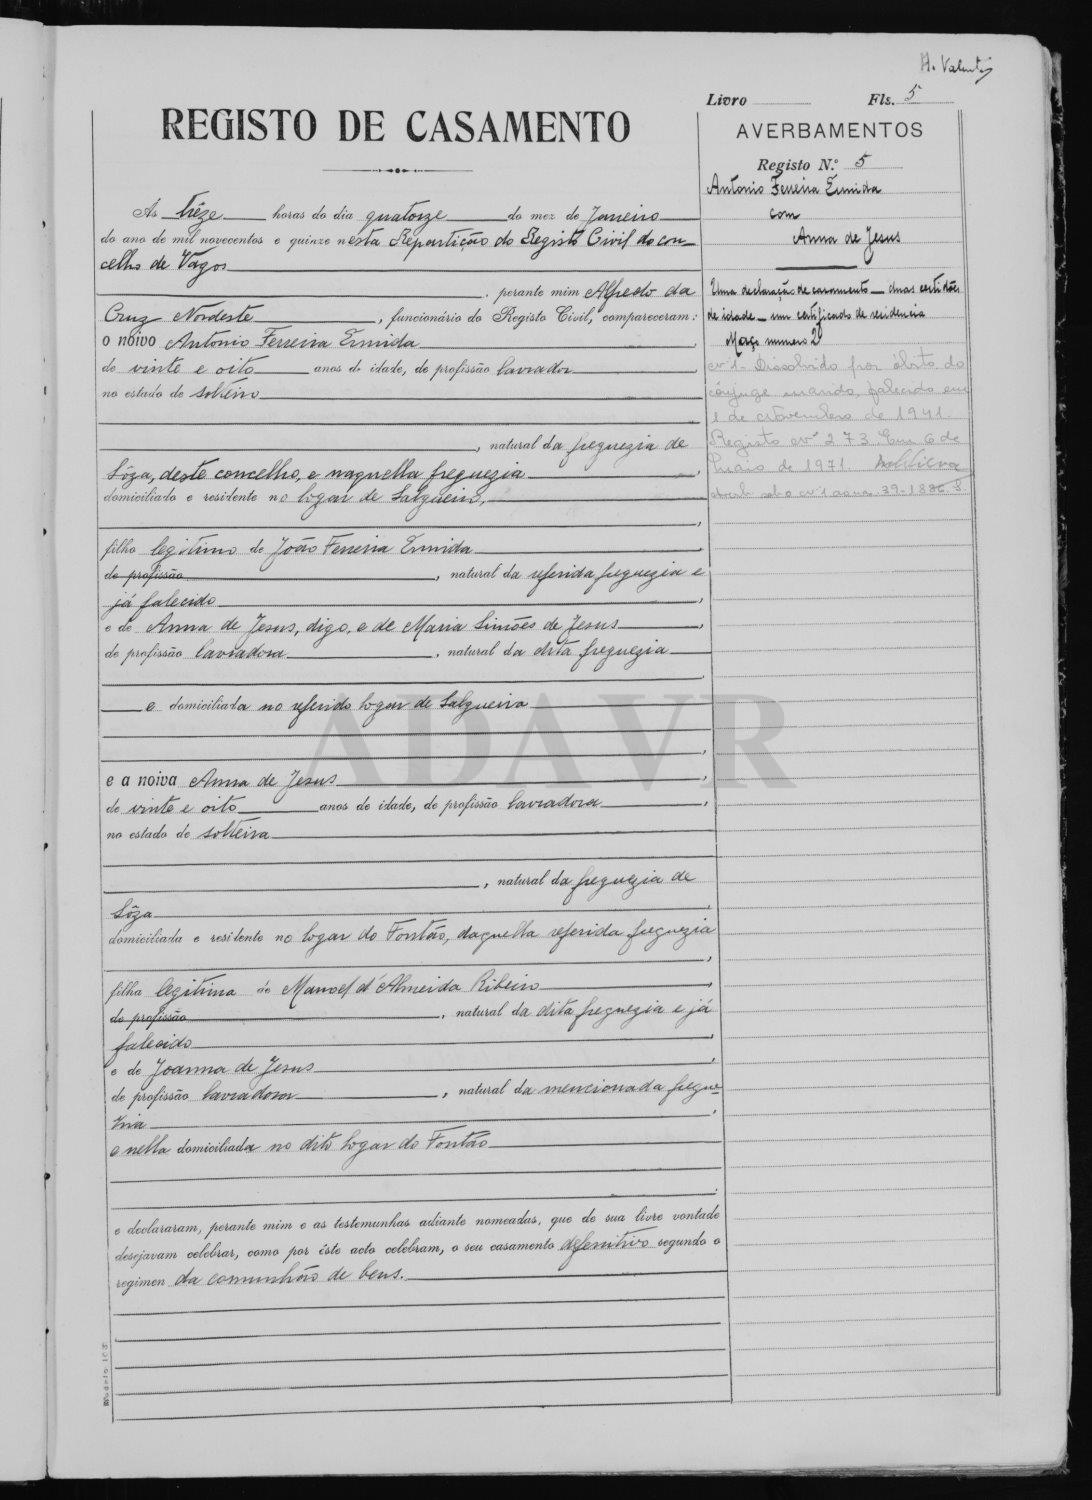 Livro Fls. 5
REGISTO DE CASAMENTO
Ás trêze horas do dia quatorze do mez de Janeiro
do ano de mil novecentos e quinze nesta Repartição do Registo Civil do con
celho de Vagos
, perante mim Alfredo da
Cruz Nordeste, funcionário do Registo Civil, compareceram:
o noivo Antonio Ferreira Ermida
de vinte e oito anos de idade, de profissão lavrador,
no estado de solteiro
, natural da freguezia de
Sôza, deste concelho, e naquella freguezia
domiciliado e residente no logar de Salgueiro,
filho legitimo de João Ferreira Ermida
de profissão, natural da referida freguezia e
já falecido
e de Anna de Jesus, digo, e de Maria Simões de Jesus,
de profissão lavradora, natural da dita freguezia
e domiciliada no referido logar de Salgueiro
e a noiva Anna de Jesus
de vinte e oito anos de idade, de profissão lavradora,
no estado de solteira
, natural da freguezia de
Sôza
domiciliada e residente no logar do Fontão, daquella referida freguezia
filha legitima de Manoel d'Almeida Ribeiro
de profissão, natural da dita freguezia e já
falecido
e de Joanna de Jesus
de profissão lavradora, natural da mencionada fregue
zia
e nella domiciliada no dito logar do Fontão
e declararam, perante mim e as testemunhas adiante nomeadas, que de sua livre vontade
desejavam celebrar, como por êste acto celebram, o seu casamento defenitivo segundo o
regimen da comunhão de bens.
Modelo 103
AVERBAMENTOS
Registo N.º 5
Antonio Ferreira Ermida
com
Anna de Jesus
Uma declaração de casamento — duas certidões
de idade — um certificado de residencia
Março numero 2
Nº 1 - Dissolvido por óbito do
cônjuge marido, falecido em
1 de Novembro de 1941.
Registo nº 273. Em 6 de
Maio de 1971.
ADAVR